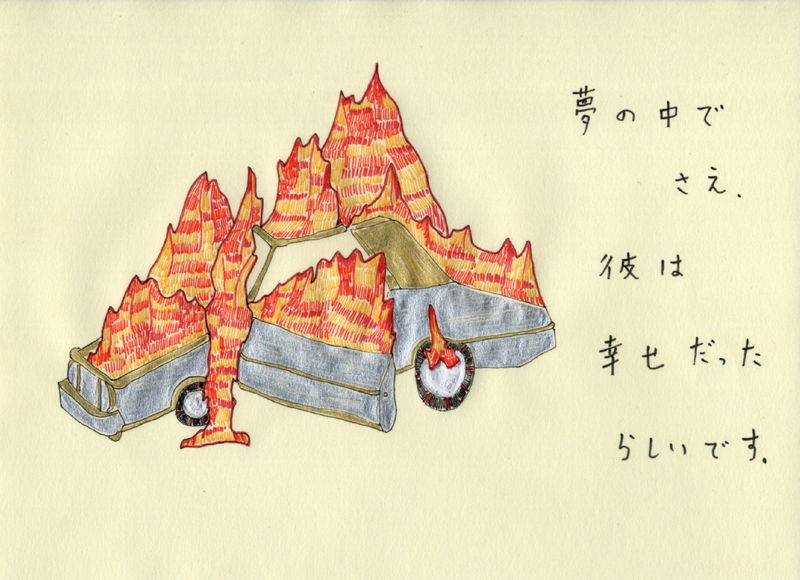 夢の中で
さえ、
彼は
幸せだった
らしいです。